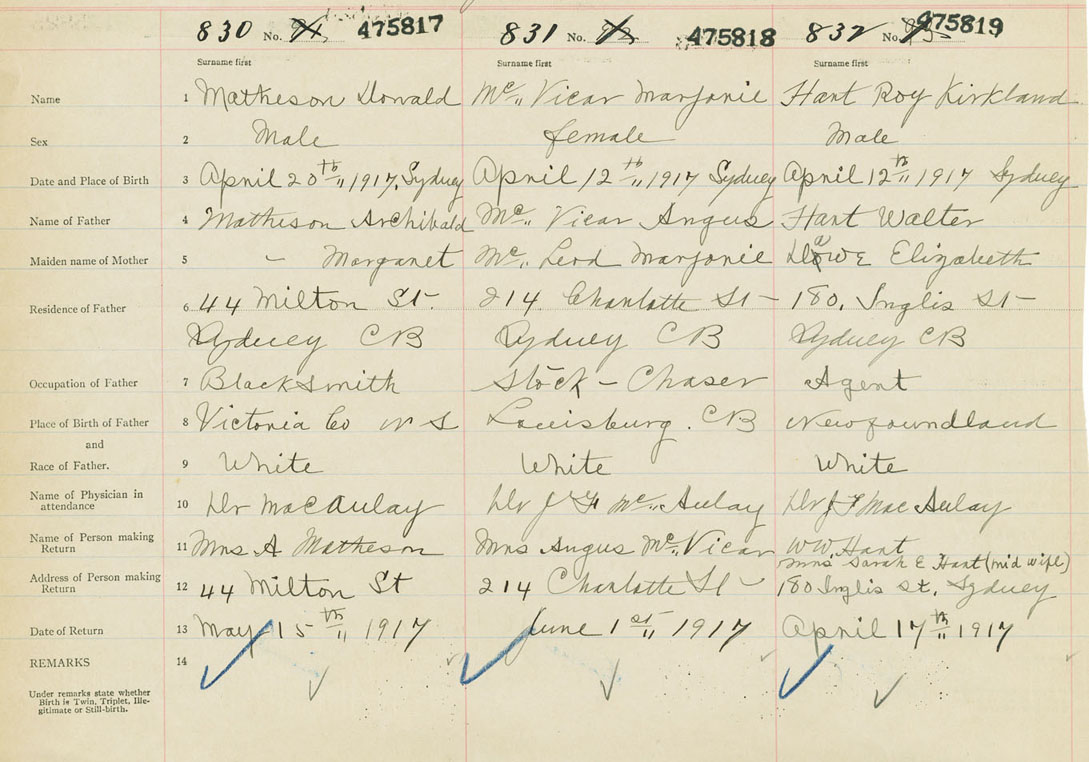 830 No. 475817 831 No. 475818 832 No. 475819
Surname first Surname first Surname first
Name 1 Matheson Donald Mc" Vicar Marjorie Hart Roy Kirkland
Sex 2 Male female Male
Date and Place of Birth 3 April 20th" 1917, Sydney April 12th" 1917 Sydney April 12th" 1917 Sydney
Name of Father 4 Matheson Archibald Mc" Vicar Angus Hart Walter
Maiden name of Mother 5 – Margaret Mc" Leod Marjorie Dawe Elizabeth
Residence of Father 6 44 Milton St 214 Charlotte St – 180, Inglis St –
Sydney CB Sydney CB Sydney CB
Occupation of Father 7 Blacksmith Stock – Chaser Agent
Place of Birth of Father 8 Victoria Co N S Louisburg. CB Newfoundland
and
Race of Father. 9 White White White
Name of Physician in
attendance 10 Dr MacAulay Dr J F Mc" Aulay Dr J F MacAulay
Name of Person making
Return 11 Mrs A Matheson Mrs Angus Mc" Vicar WW Hart
Mrs Sarah E Hart (mid wife)
Address of Person making
Return 12 44 Milton St 214 Charlotte St – 180 Inglis St. Sydney
Date of Return 13 May 15th" 1917 June 1st" 1917 April 17th" 1917
REMARKS 14
Under remarks state whether
Birth is Twin, Triplet, Ille-
gitimate or Still-birth.